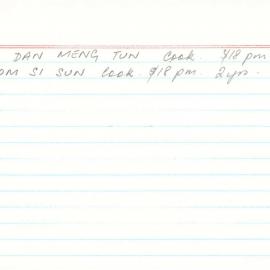 DAN MENG TUN Cook. $18 pm
OM SI SUN Cook. $18 pm. 2 yrs.